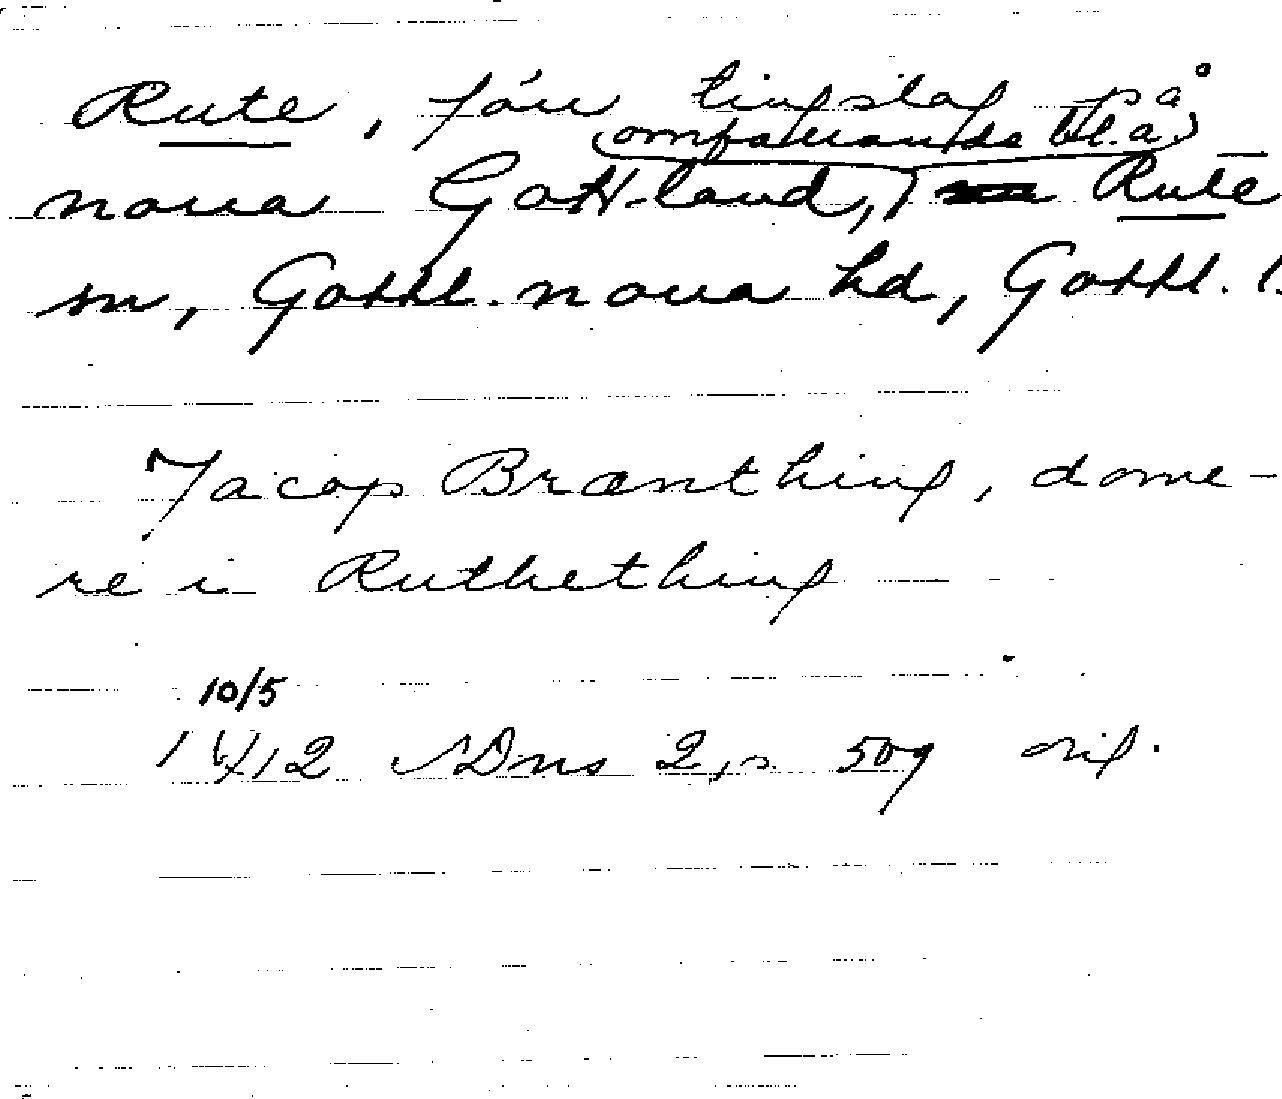 Rute, förr tingslag på
(omfattande bl.a)
norra Gottland, Rute
sn, Gottl. norra hd, Gottl. l.
Jacop Brænthing, dome-
re i Ruthething
10/5
1412 SDns 2, s. 509 orig.